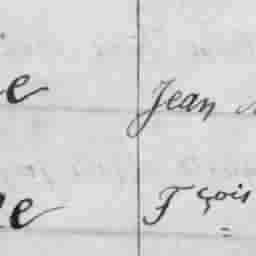 e Jean
e Fçois